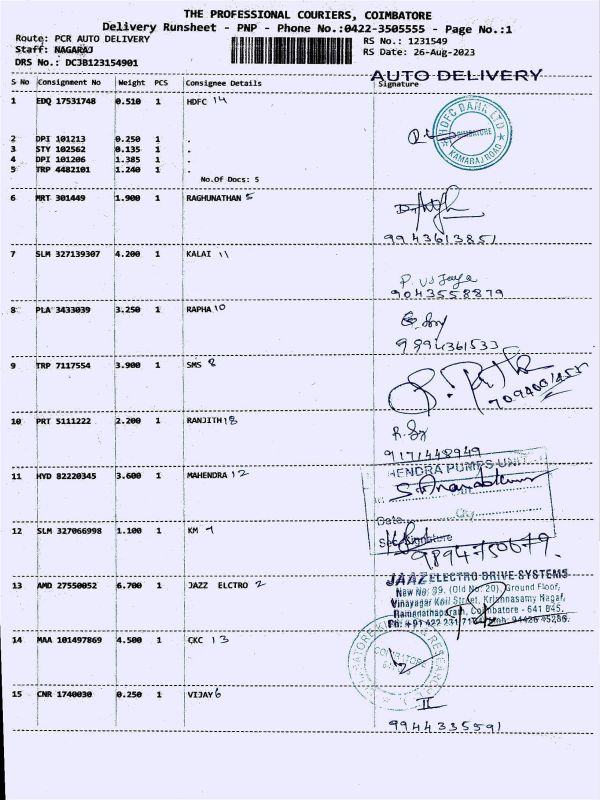 THE PROFESSIONAL COURIERS, COIMBATORE
Delivery Runsheet - PNP - Phone No.:0422-3505555 - Page No.:1
Route: PCR AUTO DELIVERY
Staff: NAGARAJ
DRS No.: DCJB123154901
RS No.: 1231549
RS Date: 26-Aug-2023
AUTO DELIVERY
S No Consignment No Weight PCS Consignee Details Signature
1 EDQ 17531748 0.510 1 HDFC 14
HDFC BANK LTD
COIMBATORE
KAMARAJ ROAD
2 DPI 101213 0.250 1 .
3 STY 102562 0.135 1 .
4 DPI 101206 1.385 1 .
5 TRP 4482101 1.240 1 .
No.Of Docs: 5
6 MRT 301449 1.900 1 RAGHUNATHAN 5
9943613851
7 SLM 327139307 4.200 1 KALAI 11
P. Vijaya
9043558879
8 PLA 3433039 3.250 1 RAPHA 10
9994361533
9 TRP 7117554 3.900 1 SMS 8
10 PRT 5111222 2.200 1 RANJITH 18
9171448949
11 HYD 82220345 3.600 1 MAHENDRA 12
HENDRA PUMPS UNIT
Date
Qty
Signature
12 SLM 327066998 1.100 1 KM 7
9894750679.
13 AMD 27550052 6.700 1 JAZZ ELCTRO 2
JAAZ ELECTRO DRIVE SYSTEMS
New No: 39, (Old No: 20), Ground Floor,
Vinayagar Koil Street, Krishnasamy Nagar,
Ramanathapuram, Coimbatore - 641 045.
14 MAA 101497869 4.500 1 CKC 13
COIMBATORE
15 CNR 1740030 0.250 1 VIJAY 6
9944335591